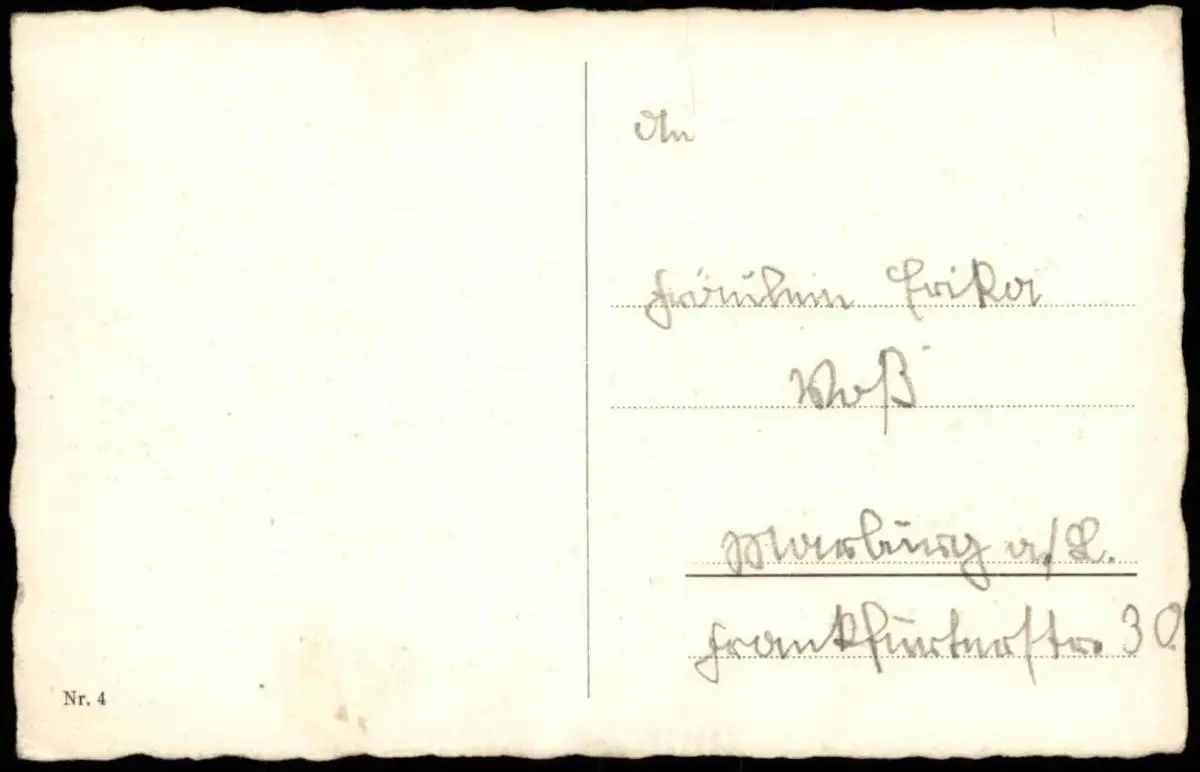 An
Fräulein Erika
Voß
Marburg a./L.
Frankfurterstr. 30
Nr. 4